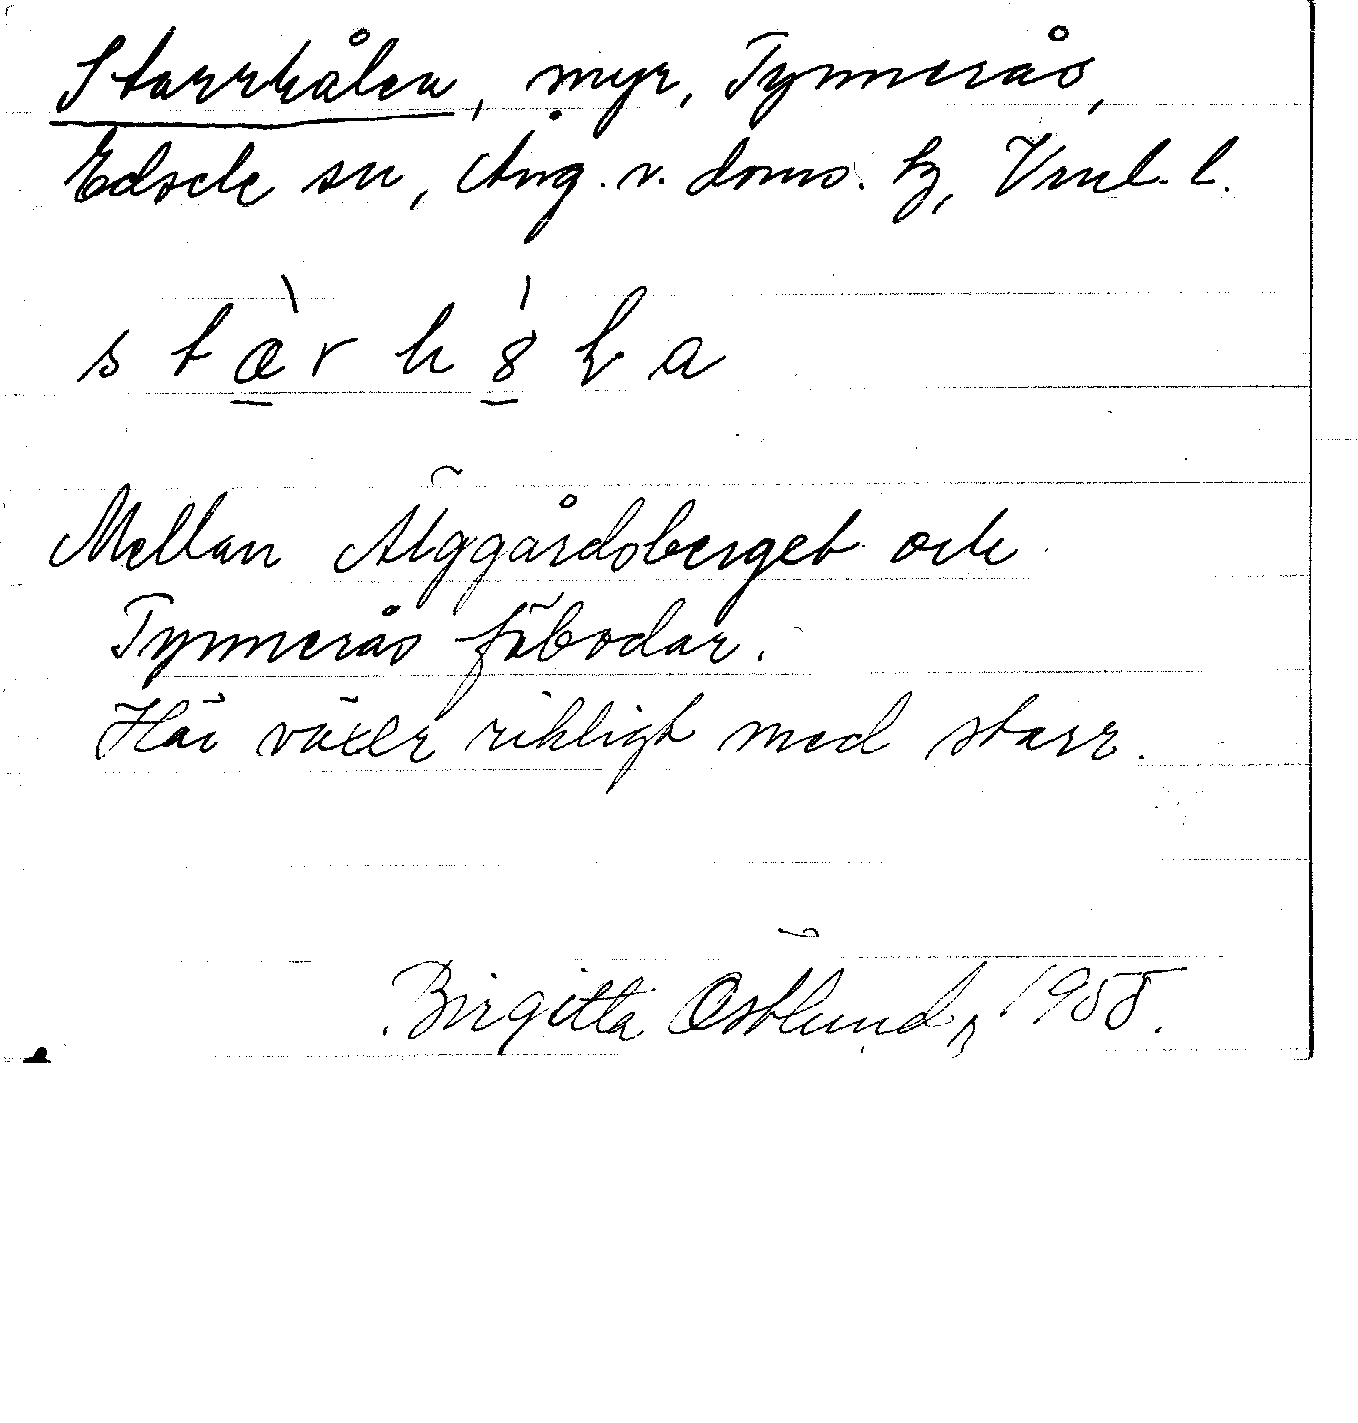 Starrhålen, myr, Tynnerås,
Edsele sn, Ång. v. doms. hg, Vnl. l.
s t æ̀ r h 8́ ɫ a
Mellan Älggårdsberget och
Tynnerås fäbodar.
Här växer rikligt med starr.
Birgitta Östlund, 1958.